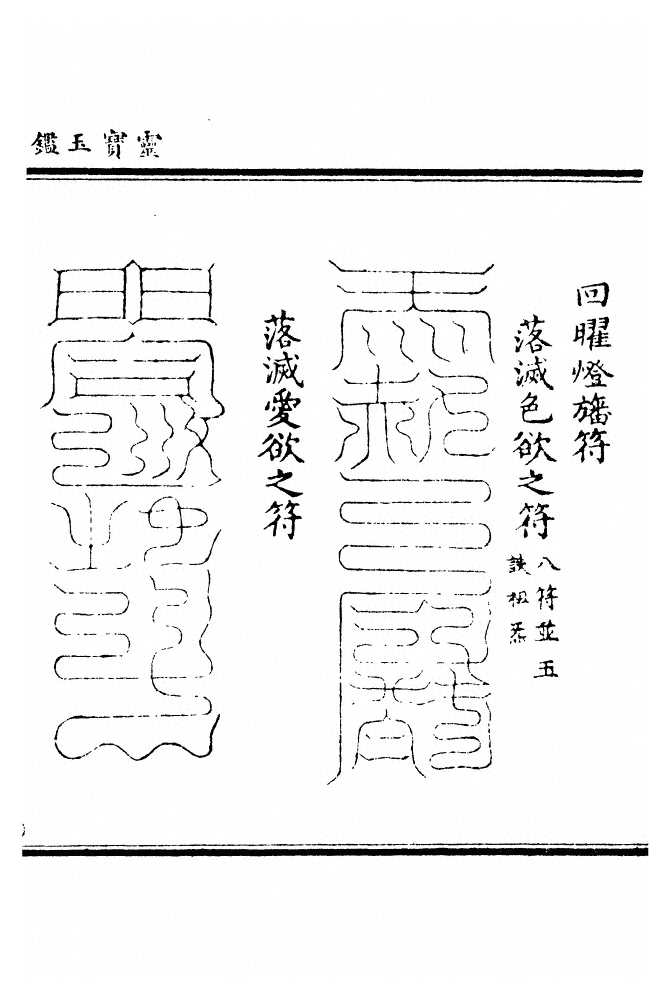 靈寶玉鑑
回曜燈旛符
落滅色欲之符
八符並五
訣祖炁
落滅愛欲之符